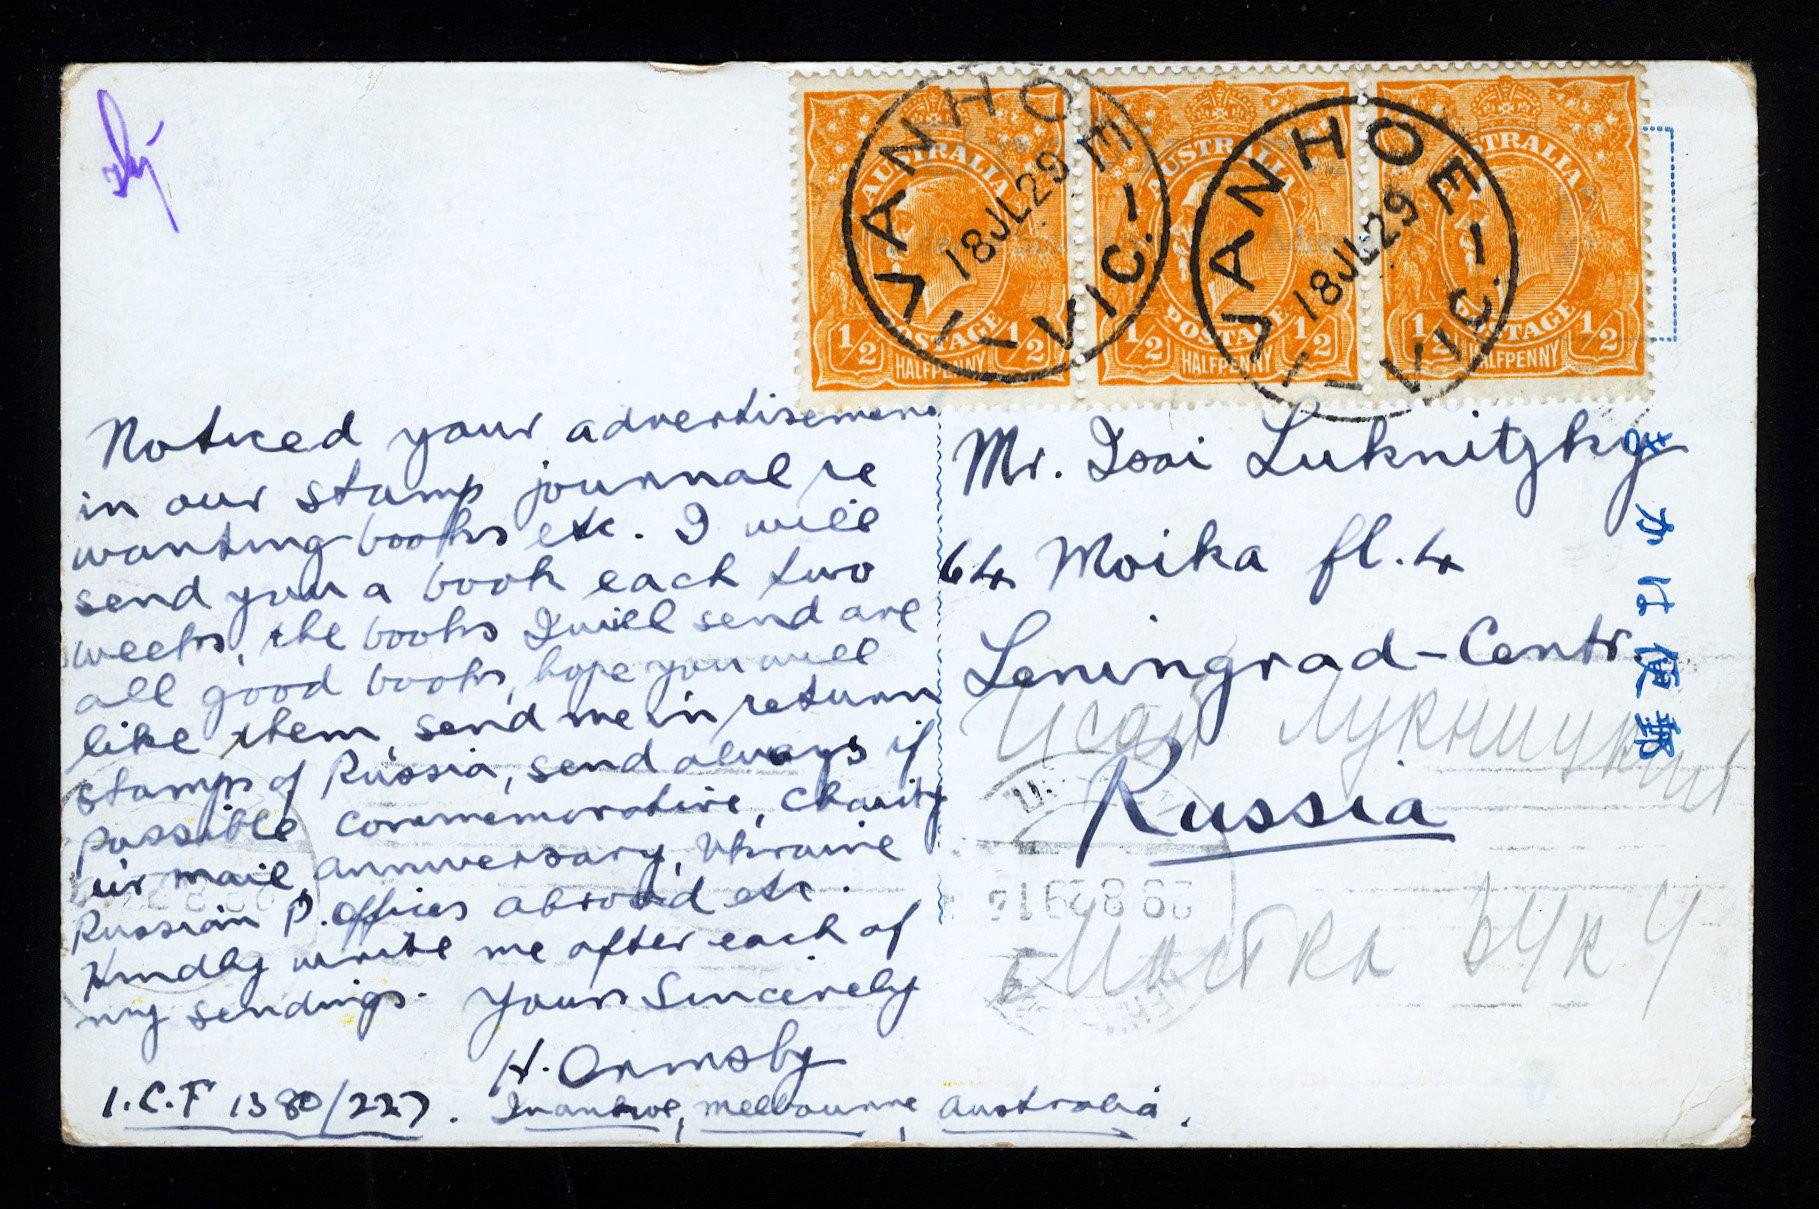 AUSTRALIA AUSTRALIA AUSTRALIA
POSTAGE POSTAGE POSTAGE
1/2 1/2 1/2 1/2 1/2 1/2
HALFPENNY HALFPENNY HALFPENNY
IVANHOE
18 JL 29
VIC.
IVANHOE
18 JL 29
VIC.
Noticed your advertisement
in our stamp journal re
wanting books etc. I will
send you a book each two
weeks, the books I will send are
all good books, hope you will
like them, send me in return
stamps of Russia, send always if
possible commemorative, charity
air mail, anniversary, Ukraine
Russian P. offices abroad etc.
Kindly write me after each of
my sendings. Yours Sincerely
H. Ormsby
I.C.F 1380/227. Ivanhoe, Melbourne, Australia.
Mr. Isai Luknitzky
64 Moika fl. 4
Leningrad-Centr.
Исай Лукницкий
Russia
28 8 29 15
きがは便郵